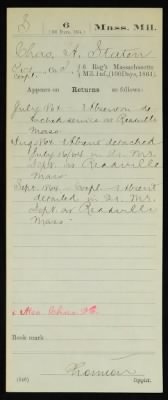 S 6 Mass. Mil.
(100 Days, 1864.)
Chas. H.
Co. 6 Reg't Massachusetts
Mil. Inf., (100 Days, 1864).
Appears on
Returns as follows:
July 1864 Absent on de-
tached service at Readville
Mass.
Aug. 1864 Absent detached
July 16/64 in Qr. Mr.
Dept. at Readville
Mass.
Sept. 1864 Corpl. Absent
detailed in Qr. Mr.
Dept. at Readville
Mass.
Chas. H.
Book mark:
(546)
Copyist.